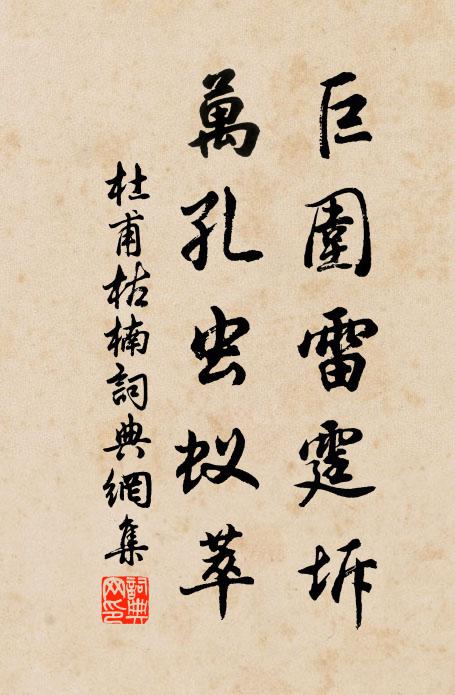 巨圍雷霆坼
萬孔虫蚁萃
杜甫枯楠詞典網集
詞典網印